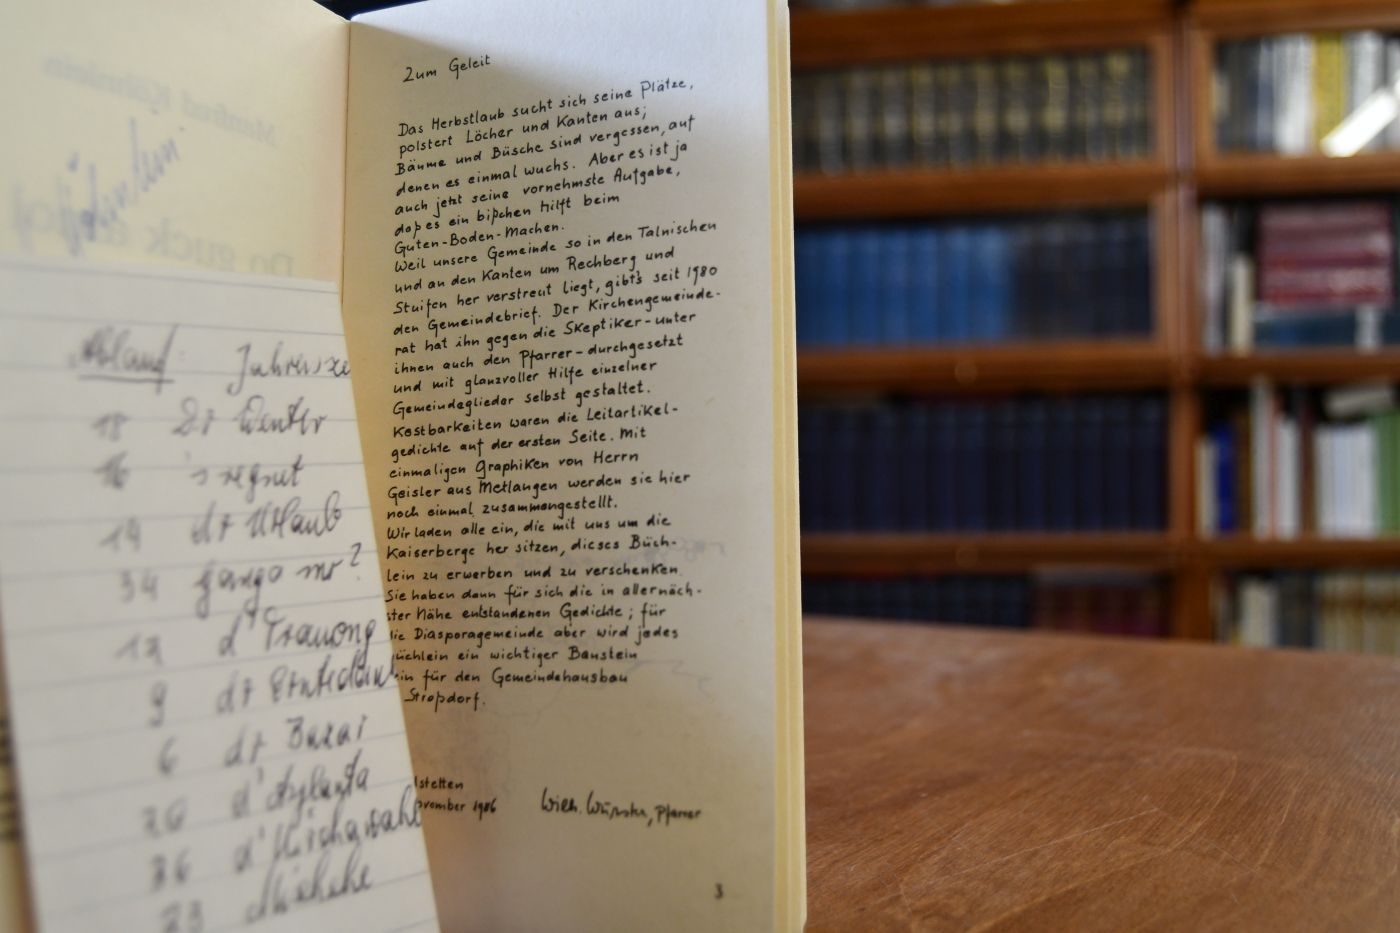 Zum Geleit
Das Herbstlaub sucht sich seine Plätze,
polstert Löcher und Kanten aus;
Bäume und Büsche sind vergessen, auf
denen es einmal wuchs. Aber es ist ja
auch jetzt seine vornehmste Aufgabe,
daß es ein bißchen hilft beim
Guten-Boden-Machen.
Weil unsere Gemeinde so in den Talnischen
und an den Kanten um Rechberg und
Stuifen her verstreut liegt, gibt's seit 1980
den Gemeindebrief. Der Kirchengemeinde-
rat hat ihn gegen die Skeptiker-unter
ihnen auch den Pfarrer-durchgesetzt
und mit glanzvoller Hilfe einzelner
Gemeindeglieder selbst gestaltet.
Kostbarkeiten waren die Leitartikel-
gedichte auf der ersten Seite. Mit
einmaligen Graphiken von Herrn
Geisler aus Metlangen werden sie hier
noch einmal zusammengestellt.
Wir laden alle ein, die mit uns um die
Kaiserberge her sitzen, dieses Büch-
lein zu erwerben und zu verschenken.
Sie haben dann für sich die in allernäch-
ster Nähe entstandenen Gedichte; für
die Diasporagemeinde aber wird jedes
üchlein ein wichtiger Baustein
ein für den Gemeindehausbau
Straßdorf.
stetten
ovember 1986 Wilh. Würster, Pfarrer
3
Ablauf: Jahresze
18 Dr Wenter
16 's regnet
14 dr Urlaub
34 Ganga mr?
12 d'Trauong
9 dr Erntedank
6 dr Bazar
26 d'Asylanta
36 d'Kirchawahl
23